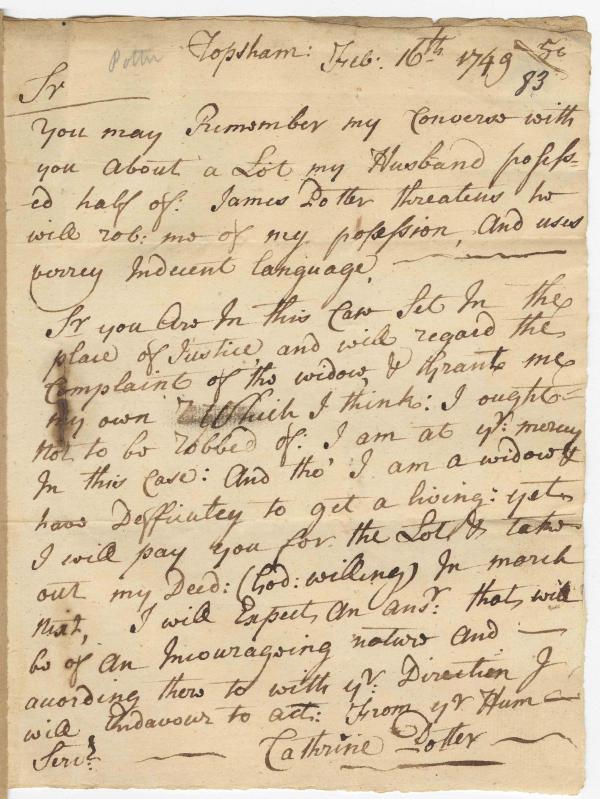 Potter
Topsham: Feb: 16th 1749 50
83
Sr
You may Remember my Converse with
you About a Lot my Husband posess-
ed half of: James Potter threatens he
will rob: me of my posession, And uses
verrey Indecent language
Sr you Are In this Case Set In the
place of Justice, and will regard the
Complaint of the widow, & Grant me
my own which I think: I ought
not to be robbed of: I am at yr: mercy
In this Case: And tho' I am a widow &
have Defficulty to get a living: yet
I will pay you for the Lot & take
out my Deed: (God: willing) In march
next, I will Expect An ansr: that will
be of An Incourageing nature And
acording there to with yr: Direction I
will Endavour to act: From yr Hum
Servt: Cathrine Potter